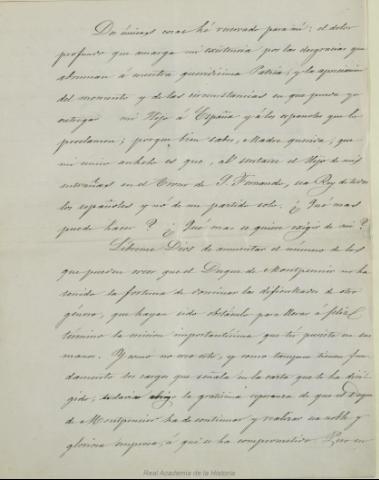 Dos únicas cosas hé reservado para mí: el dolor
profundo que amarga mi existencia por las desgracias que
abruman á nuestra queridísima Patria; y la apreciacion
del momento y de las circunstancias en que pueda yo
entregar mi Hijo á España y á los españoles que lo
proclamen; porque bien sabes, Madre querida, que
mi unico anhelo es que, al sentarse el Hijo de mis
entrañas en el Trono de S. Fernando, sea Rey de todos
los españoles y no de un partido solo. ¿Qué mas
puedo hacer? ¿Qué mas se quiere exigir de mí?
Líbreme Dios de aumentar el número de los
que puedan creer que el Duque de Montpensier no ha
tenido la fortuna de dominar las dificultades de otro
género, que hayan sido obstáculo para llevar á feliz
término la mision importantísima que tú pusiste en sus
manos. Yo no creo esto, y como tampoco tienen fun-
damento los cargos que señala en la carta que te ha diri-
gido; todavia abrigo la gratísima esperanza de que el Duque
de Montpensier ha de continuar y realizar su noble y
gloriosa empresa, á que se ha comprometido. Pero en
Real Academia de la Historia